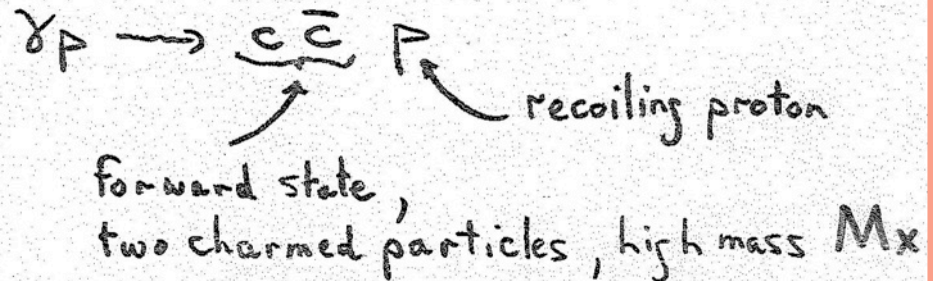 γp → c c̄ p
recoiling proton
forward state,
two charmed particles, high mass Mx